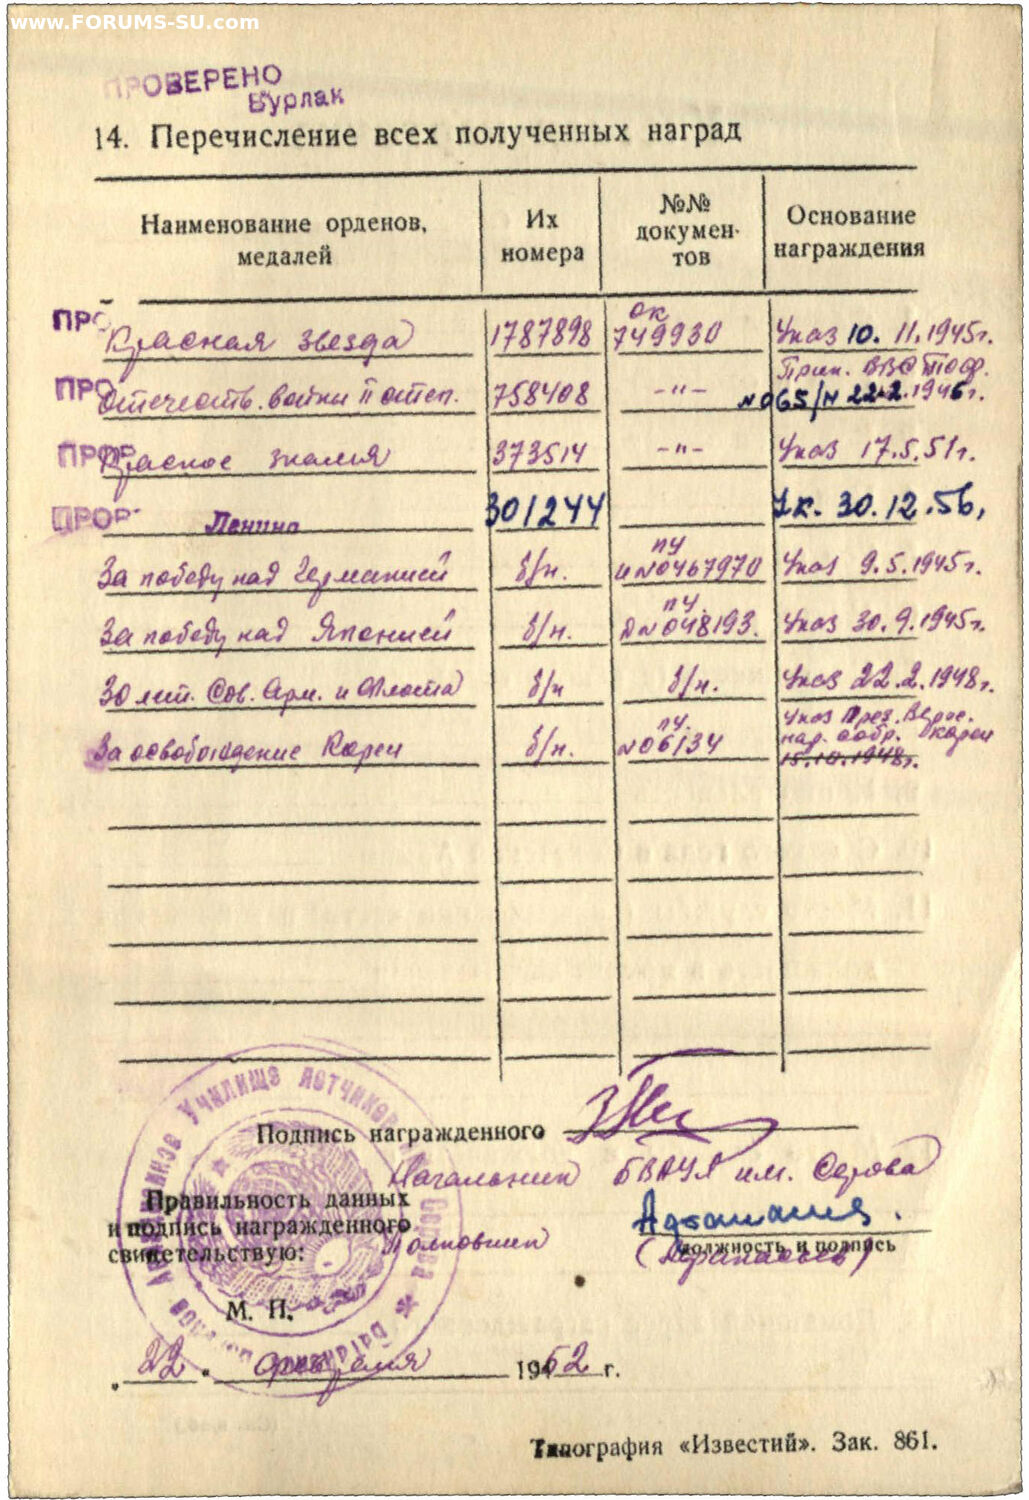 www.FORUMS-SU.com
ПРОВЕРЕНО
Бурлак
14. Перечисление всех полученных наград
Наименование орденов, медалей
Их номера
№№ докумен- тов
Основание награждения
ПРО Красная звезда 1787898 ОК 749930 Указ 10. 11.1945г.
ПРО Отечеств. войны II степ. 758408 -"- Прик. ВВС ТОФ. №065/н 22.2.1946г.
ПРОВ Красное знамя 373514 -"- Указ 17.5.51г.
ПРОВ Ленина 301244 Ук. 30.12.56,
За победу над Германией б/н. ПУ И №0467970 Указ 9.5.1945г.
За победу над Японией б/н. ПУ. А №048193. Указ 30.9.1945г.
30 лет. Сов. Арм. и Флота б/н б/н. Указ 22.2.1948г.
За освобождение Кореи б/н. ПУ. №06134 Указ През. Верхн. нар. собр. Кореи 15.10.1948г.
Подпись награжденного
Начальник БВАУЛ им. Серова
Правильность данных
и подпись награжденного
свидетельствую:
Полковник
Афанасьев
должность и подпись
(Афанасьев)
М. П.
„22" февраля 1962 г.
Училище летчиков
Серова
Типография «Известий». Зак. 861.